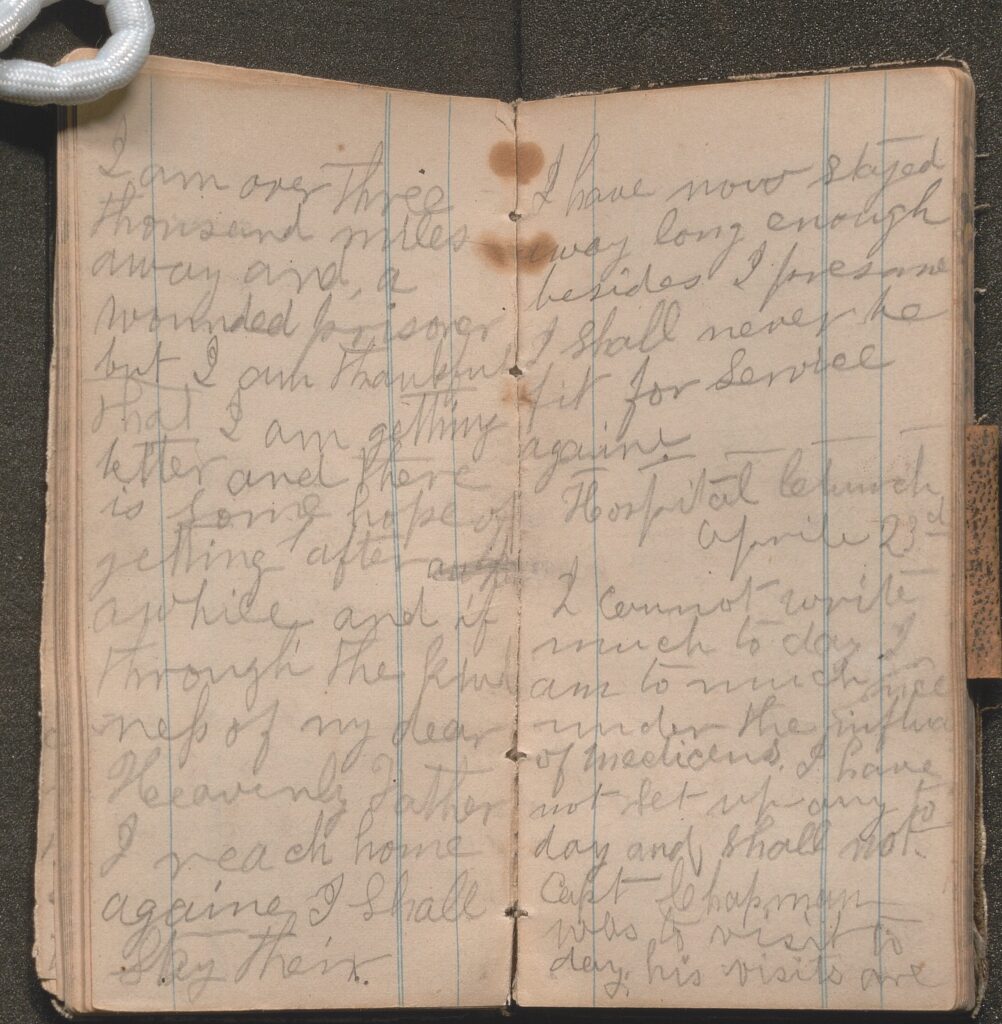 I am over three
thousand miles
away and, a
wounded prisoner
but I am thankful
that I am getting
better and there
is some hope of
getting after
awhile and if
through the kind
ness of my dear
Heavenly Father
I reach home
againe I shall
stay their.
I have now stayed
away long enough
besides I presume
I shall never be
fit for Service
againe.
Hospital Church
Aprile 23d
I cannot write
much to day I
am to much
under the influ
of medicens. I have
not set up any to
day and shall not.
Capt Chapman
was to visit to
day, his visits are